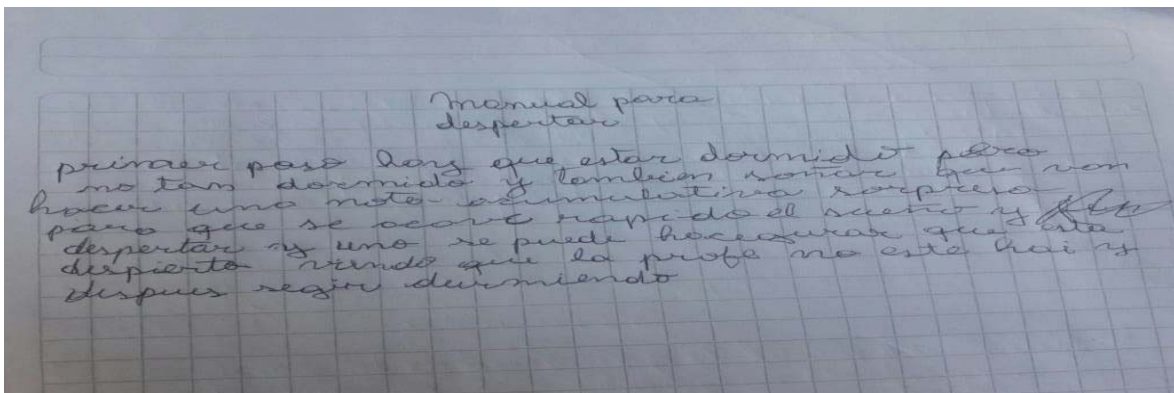 manual para
despertar
primer paso hay que estar dormido pero
no tan dormido y tambien sonar que van
hacer una nota acumulativa sorpresa
para que se acave rapido el sueño y
despertar y uno se puede hacegurar que esta
despierto viendo que la profe no este hai y
despues segir durmiendo